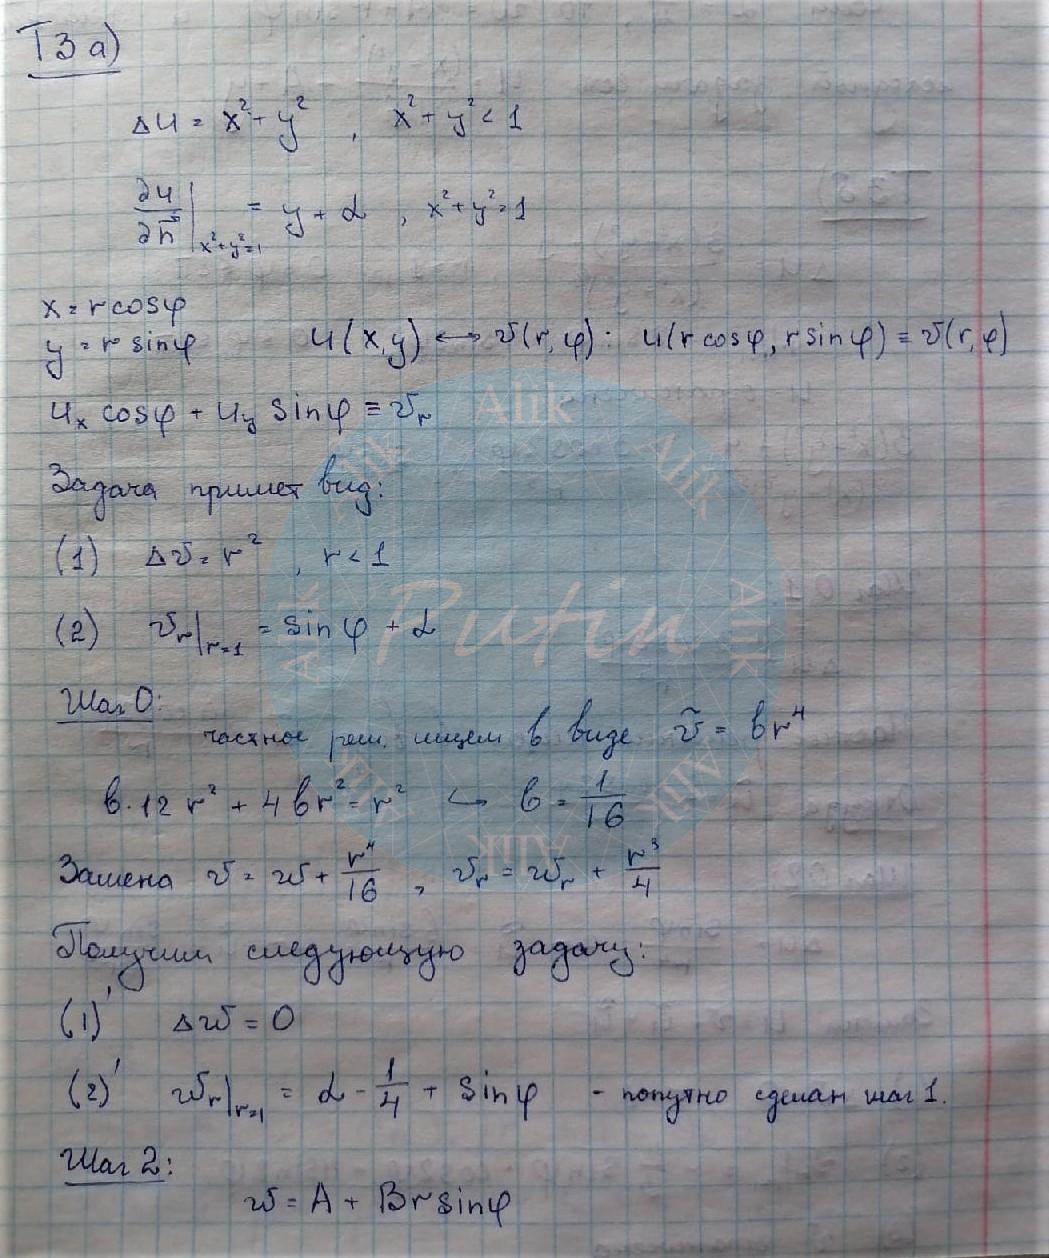 Т3 а)
Δu = x² + y² , x² + y² < 1
∂u/∂n⃗ |ₓ²₊ᵧ²₌₁ = y + α , x² + y² = 1
x = r cosφ
y = r sinφ u(x,y) ↔ v(r,φ): u(r cosφ, r sinφ) ≡ v(r,φ)
uₓ cosφ + uᵧ sinφ ≡ vᵣ
Задача примет вид:
(1) Δv = r² , r < 1
(2) vᵣ|ᵣ₌₁ = sinφ + α
Шаг 0:
частное реш. ищем в виде ṽ = br⁴
b·12r² + 4br² = r² ↪ b = 1/16
Замена v = w + r⁴/16 , vᵣ = wᵣ + r³/4
Получим следующую задачу:
(1)' Δw = 0
(2)' wᵣ|ᵣ₌₁ = α - 1/4 + sinφ - попутно сделан шаг 1.
Шаг 2:
w = A + Br sinφ
Alik
Alik
Alik
Alik
Alik
Alik
Alik
Alik
Putin